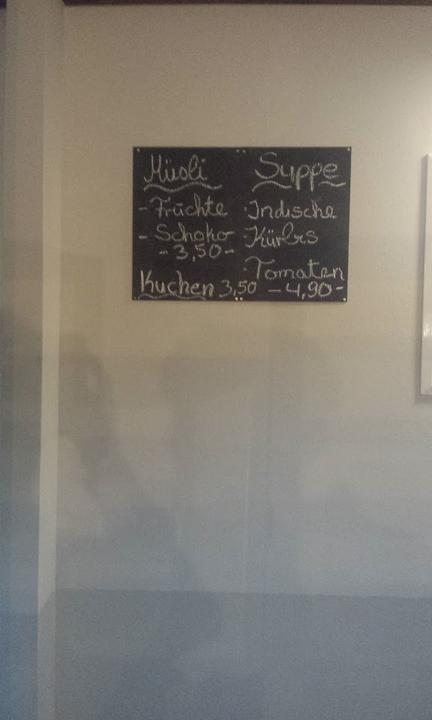 Müsli
- Früchte
- Schoko
- 3,50 -
Kuchen 3,50
Suppe
· Indische
· Kürbis
· Tomaten
- 4,90 -